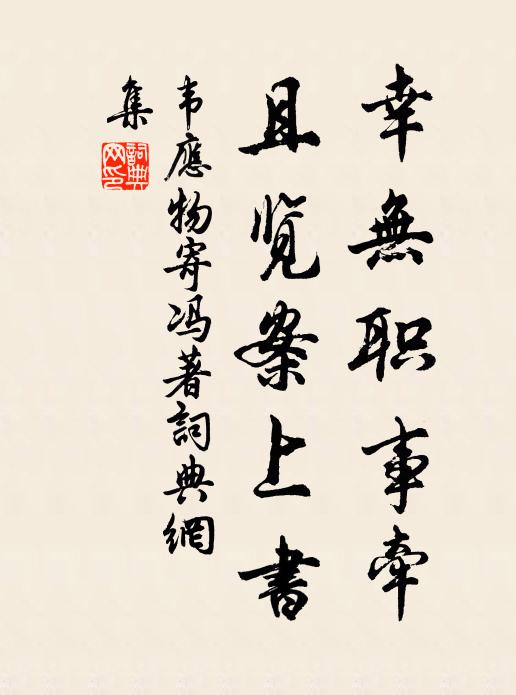 幸無职事牽
且览案上書
韦應物寄冯著詞典網
集
詞典網印